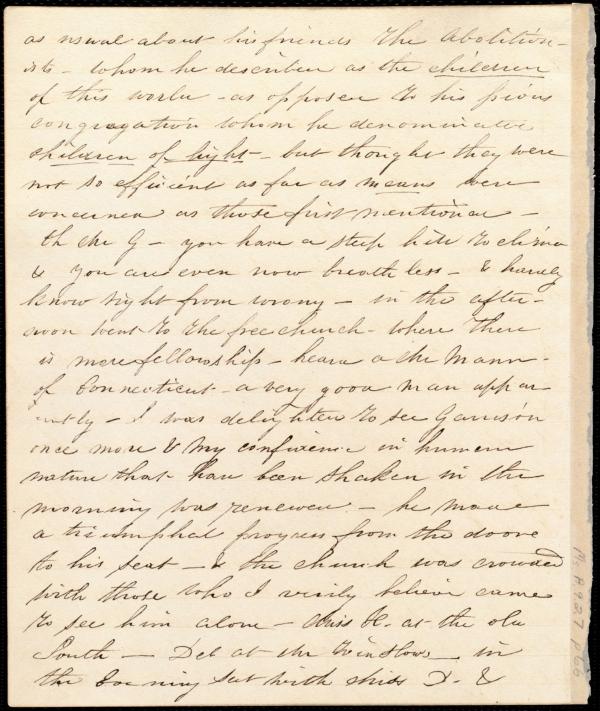 as usual about his friends the Abolition-
ists - whom he describes as the children
of this world - as opposed to his pious
congregation whom he denominates
children of light - but thought they were
not so efficient as far as means were
concerned as those first mentioned -
Ah Mr G - you have a steep hill to climb
& you are even now breathless - & hardly
know right from wrong - in the after-
noon went to the free church - where there
is more fellowship - heard a Mr Mann -
of Connecticut - a very good man appar-
ently - I was delighted to see Garrison
once more & my confidence in human
nature that had been shaken in the
morning was renewed - he made
a triumphal progress from the door
to his seat - & the church was crowded
with those who I verily believe came
to see him alone - Miss C. at the old
South - Deb at the Winslows - in
the Evening sat with Miss D. &
Ms. A.9.2.7 p66